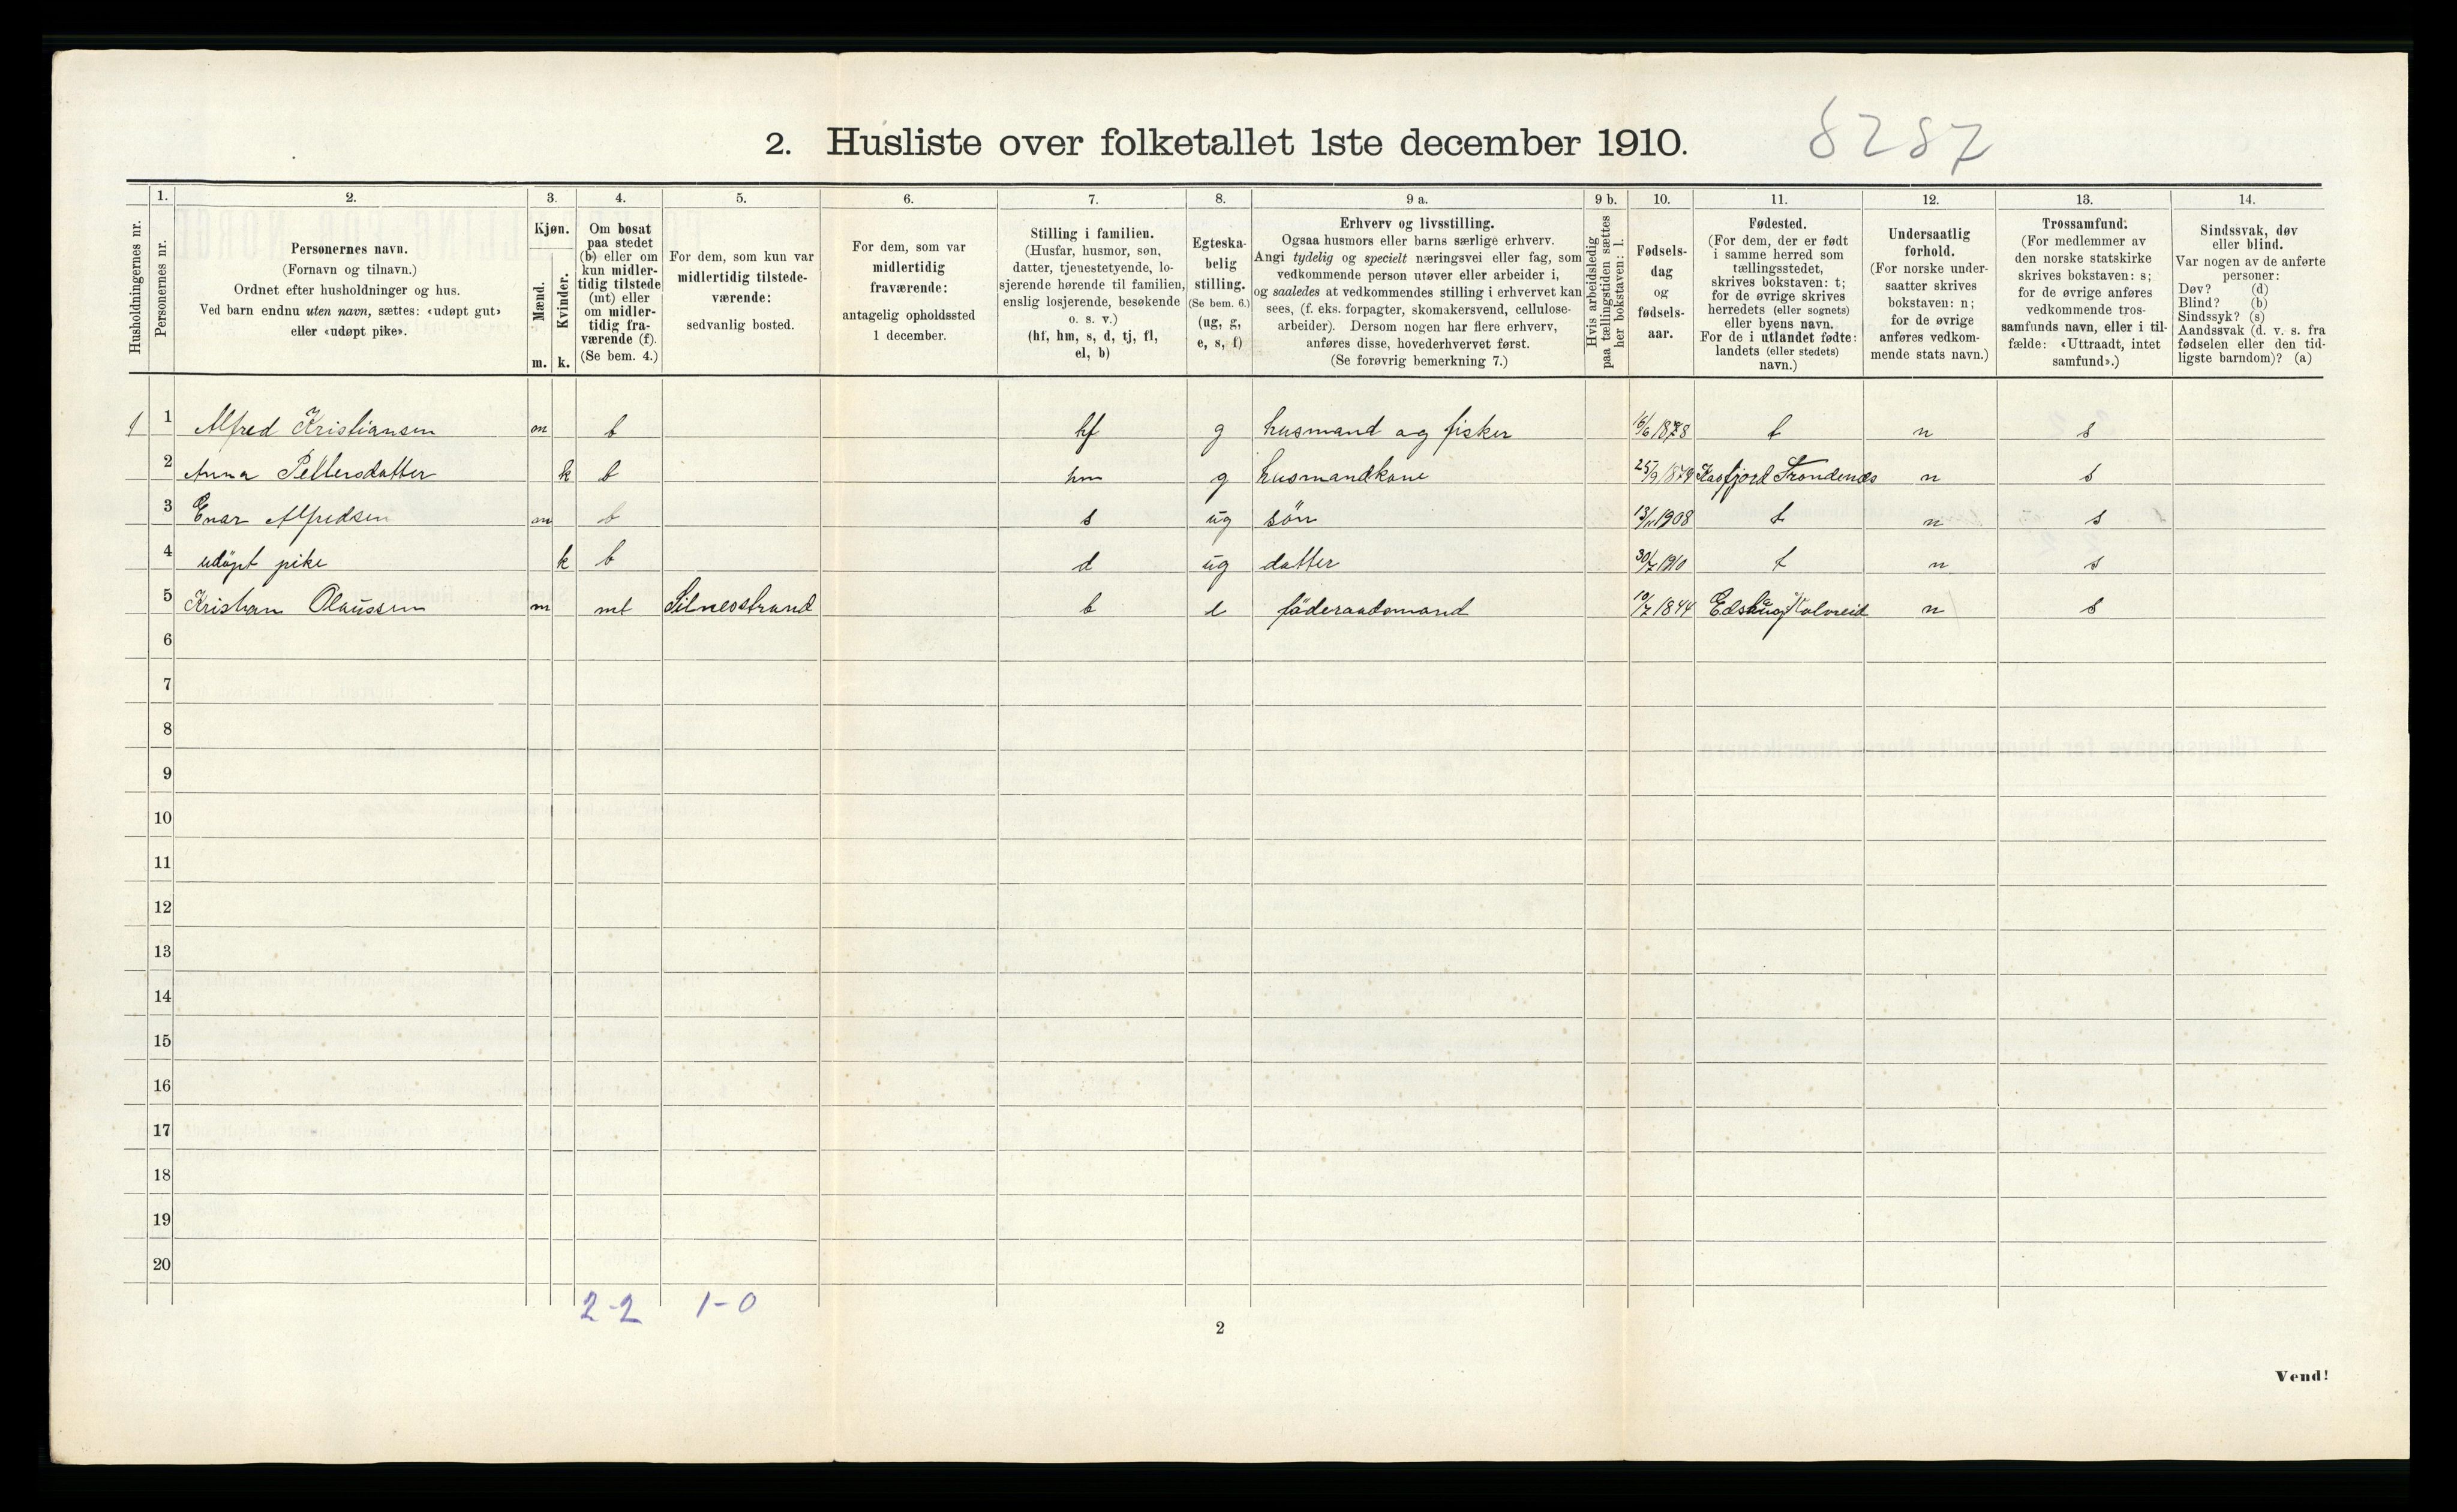 2. Husliste over folketallet 1ste december 1910. 8287
Husholdningernes nr.
1. Personernes nr.
2. Personernes navn.
(Fornavn og tilnavn.)
Ordnet efter husholdninger og hus.
Ved barn endnu uten navn, sættes: «udøpt gut»
eller «udøpt pike».
3. Kjøn.
Mænd. m.
Kvinder. k.
4. Om bosat
paa stedet
(b) eller om
kun midler-
tidig tilstede
(mt) eller
om midler-
tidig fra-
værende (f).
(Se bem. 4.)
5. For dem, som kun var
midlertidig tilstede-
værende:
sedvanlig bosted.
6. For dem, som var
midlertidig
fraværende:
antagelig opholdssted
1 december.
7. Stilling i familien.
(Husfar, husmor, søn,
datter, tjenestetyende, lo-
sjerende hørende til familien,
enslig losjerende, besøkende
o. s. v.)
(hf, hm, s, d, tj, fl,
el, b)
8. Egteska-
belig
stilling.
(Se bem. 6.)
(ug, g,
e, s, f)
9 a. Erhverv og livsstilling.
Ogsaa husmors eller barns særlige erhverv.
Angi tydelig og specielt næringsvei eller fag, som
vedkommende person utøver eller arbeider i,
og saaledes at vedkommendes stilling i erhvervet kan
sees, (f. eks. forpagter, skomakersvend, cellulose-
arbeider). Dersom nogen har flere erhverv,
anføres disse, hovederhvervet først.
(Se forøvrig bemerkning 7.)
9 b. Hvis arbeidsledig
paa tællingstiden sættes
her bokstaven: l.
10. Fødsels-
dag
og
fødsels-
aar.
11. Fødested.
(For dem, der er født
i samme herred som
tællingsstedet,
skrives bokstaven: t;
for de øvrige skrives
herredets (eller sognets)
eller byens navn.
For de i utlandet fødte:
landets (eller stedets)
navn.)
12. Undersaatlig
forhold.
(For norske under-
saatter skrives
bokstaven: n;
for de øvrige
anføres vedkom-
mende stats navn.)
13. Trossamfund.
(For medlemmer av
den norske statskirke
skrives bokstaven: s;
for de øvrige anføres
vedkommende tros-
samfunds navn, eller i til-
fælde: «Uttraadt, intet
samfund».)
14. Sindssvak, døv
eller blind.
Var nogen av de anførte
personer:
Døv? (d)
Blind? (b)
Sindssyk? (s)
Aandssvak (d. v. s. fra
fødselen eller den tid-
ligste barndom)? (a)
1 1 Alfred Kristiansen m b hf g husmand og fisker 16/6 1878 t n s
2 Anna Pettersdatter k b hm g husmandkone 25/9 1874 Kasfjord Trondenes n s
3 Enar Alfredsen m b s ug sön 13/11 1908 t n s
4 udöpt pike k b d ug datter 30/7 1910 t n s
5 Kristian Olaussen m mt b e föderaadsmand 10/7 1844 n s
6
7
8
9
10
11
12
13
14
15
16
17
18
19
20
2-2 1-0
2
Vend!